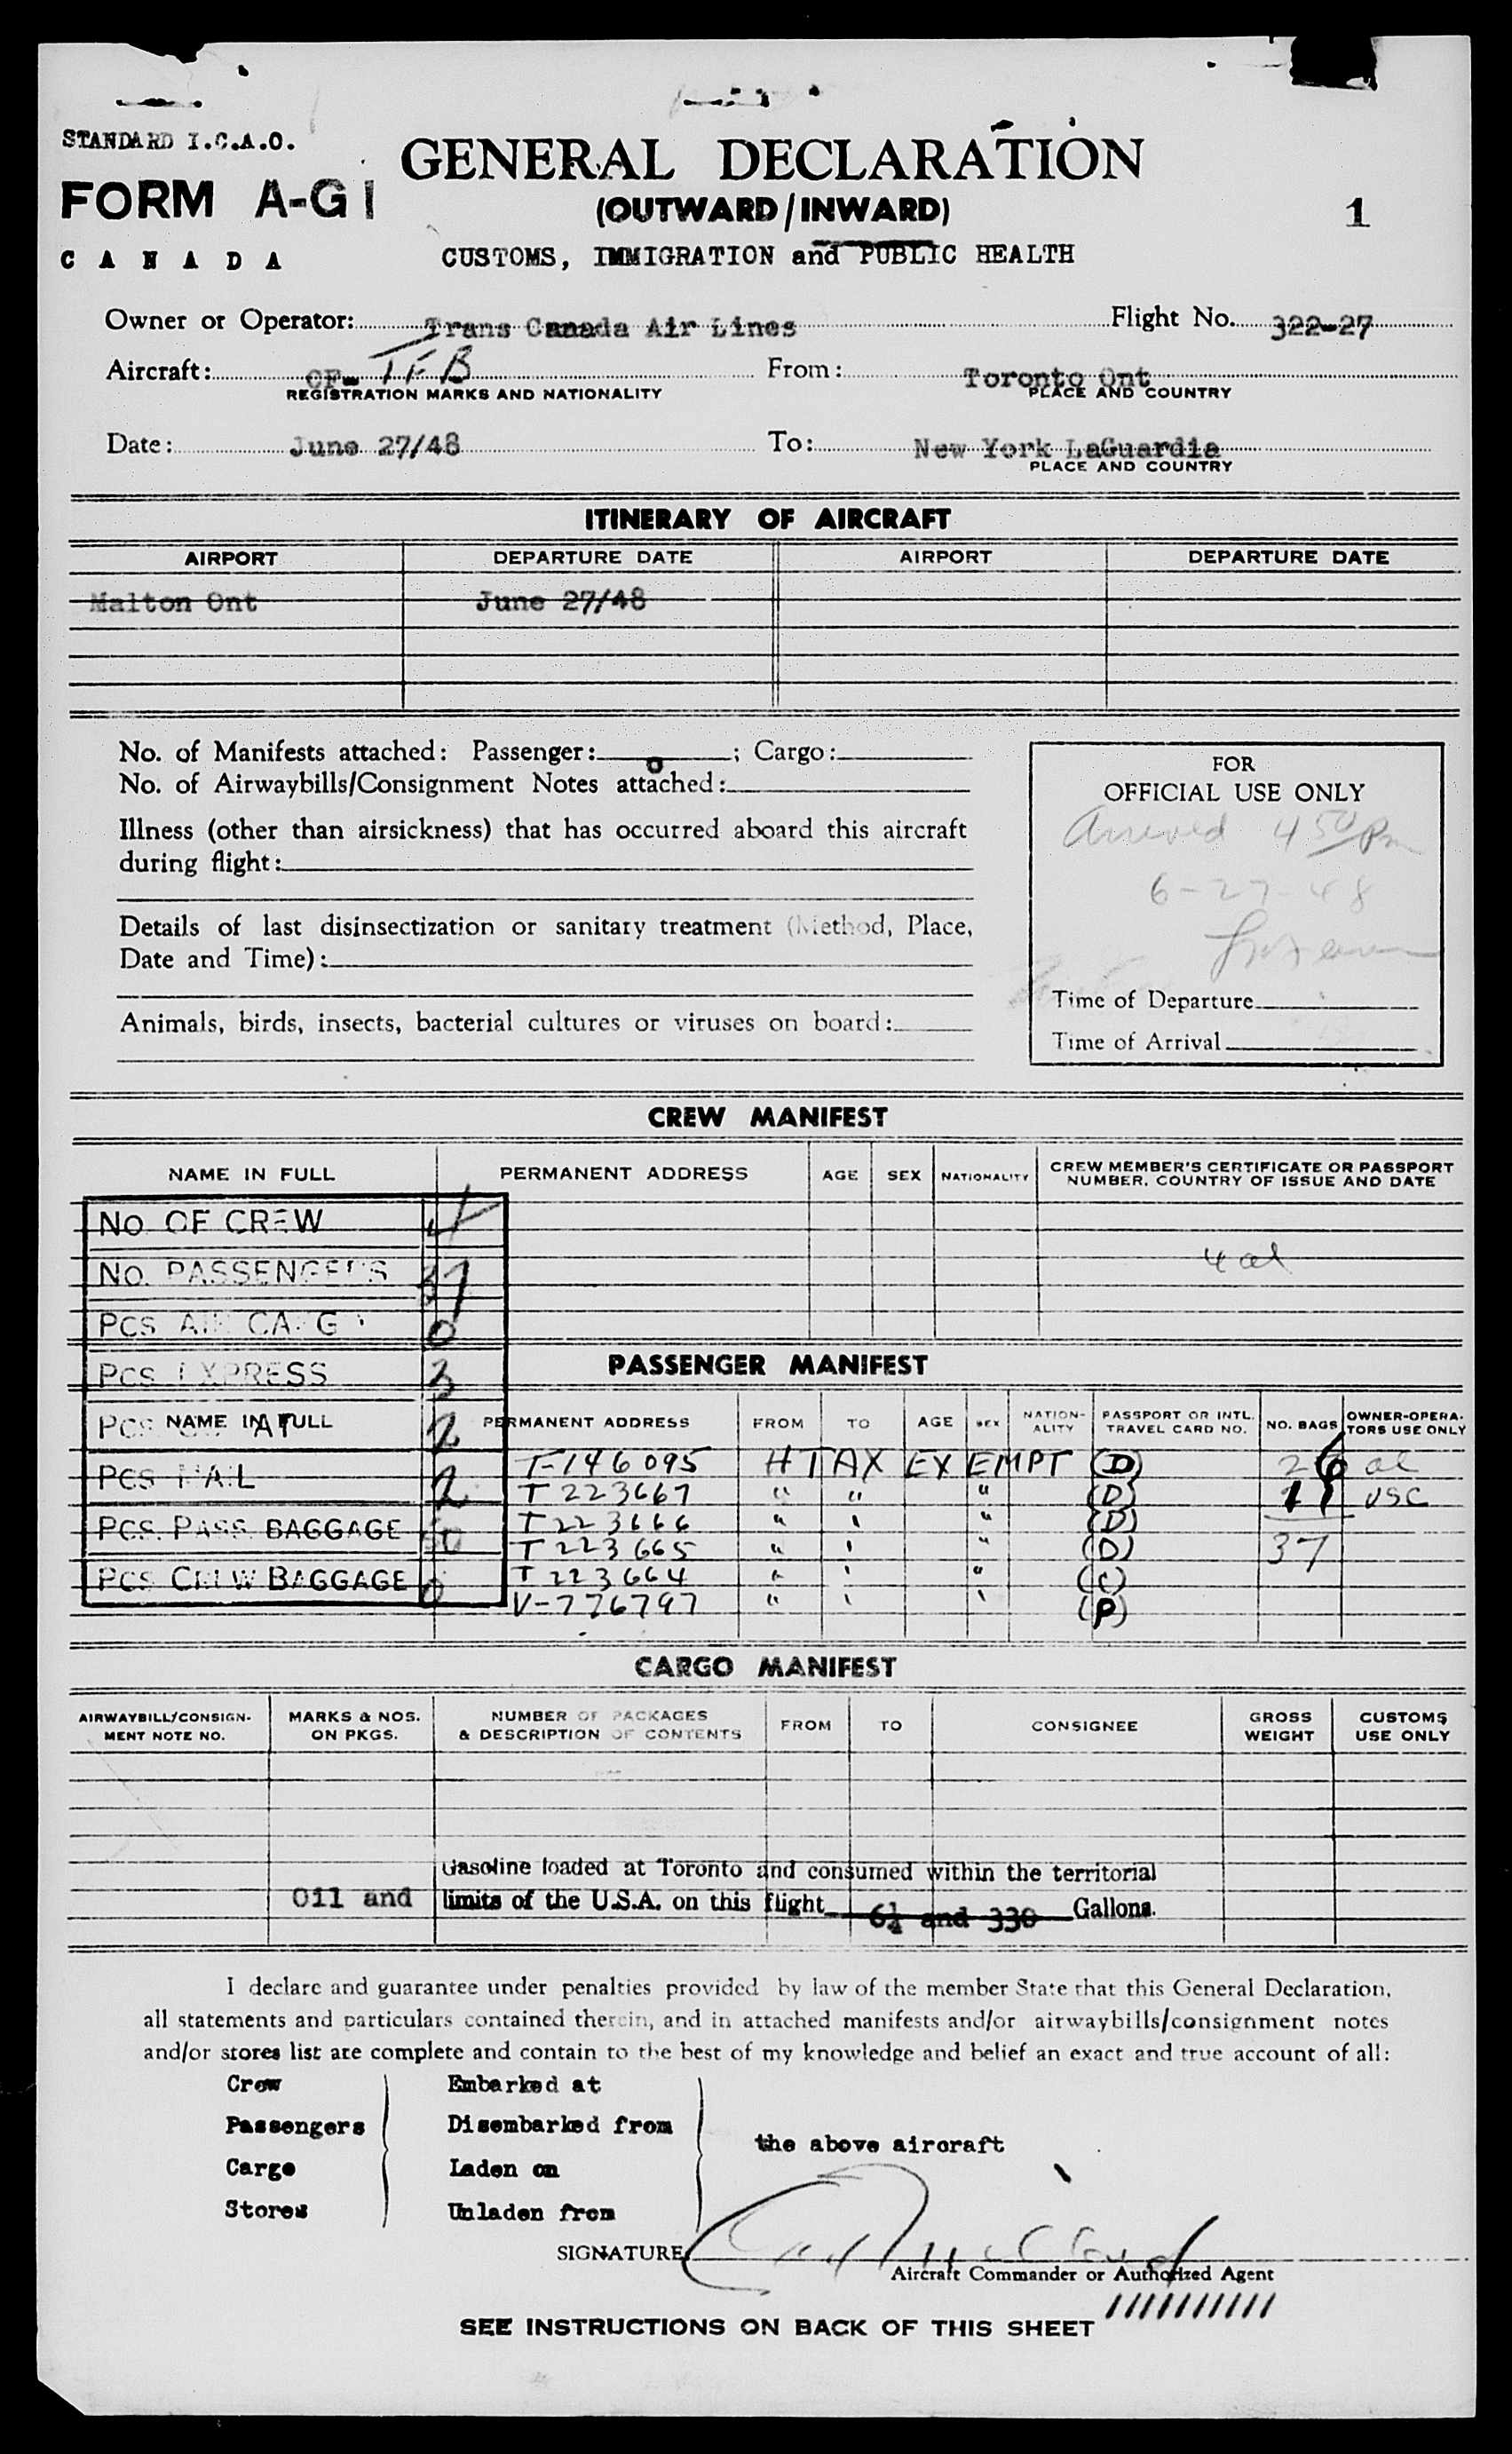 STANDARD I.C.A.O.
FORM A-G1
CANADA
GENERAL DECLARATION
(OUTWARD/INWARD)
CUSTOMS, IMMIGRATION and PUBLIC HEALTH
1
Owner or Operator: Trans Canada Air Lines Flight No. 322-27
Aircraft: CF- TFB From: Toronto Ont
REGISTRATION MARKS AND NATIONALITY PLACE AND COUNTRY
Date: June 27/48 To: New York LaGuardia
PLACE AND COUNTRY
ITINERARY OF AIRCRAFT
AIRPORT DEPARTURE DATE AIRPORT DEPARTURE DATE
Malton Ont June 27/48
No. of Manifests attached: Passenger: 0; Cargo:
No. of Airwaybills/Consignment Notes attached:
Illness (other than airsickness) that has occurred aboard this aircraft
during flight:
Details of last disinsectization or sanitary treatment (Method, Place,
Date and Time):
Animals, birds, insects, bacterial cultures or viruses on board:
FOR
OFFICIAL USE ONLY
Arrived 4 50 Pm
6-27-48
Time of Departure
Time of Arrival
CREW MANIFEST
NAME IN FULL PERMANENT ADDRESS AGE SEX NATIONALITY CREW MEMBER'S CERTIFICATE OR PASSPORT
NUMBER, COUNTRY OF ISSUE AND DATE
No OF CREW 4
4 al
No. PASSENGERS 37
Pcs AIR CARGO 0
Pcs EXPRESS 3
PASSENGER MANIFEST
NAME IN FULL PERMANENT ADDRESS FROM TO AGE SEX NATION-ALITY PASSPORT OR INTL. TRAVEL CARD NO. NO. BAGS OWNER-OPERA-TORS USE ONLY
Pcs 2
Pcs MAIL 2
Pcs. PASS. BAGGAGE
Pcs CREW BAGGAGE 0
T-146095 H TAX EXEMPT (D) 26 al
T 223667 " " " (D) 11 USC
T 223666 " " " (D)
T 223665 " " " (D) 37
T 223664 " " " (C)
V-776797 " " " (P)
CARGO MANIFEST
AIRWAYBILL/CONSIGN-MENT NOTE NO. MARKS & NOS. ON PKGS. NUMBER OF PACKAGES & DESCRIPTION OF CONTENTS FROM TO CONSIGNEE GROSS WEIGHT CUSTOMS USE ONLY
Gasoline loaded at Toronto and consumed within the territorial
Oil and limits of the U.S.A. on this flight 6¼ and 330 Gallons.
I declare and guarantee under penalties provided by law of the member State that this General Declaration,
all statements and particulars contained therein, and in attached manifests and/or airwaybills/consignment notes
and/or stores list are complete and contain to the best of my knowledge and belief an exact and true account of all:
Crew Embarked at
Passengers Disembarked from
the above aircraft
Cargo Laden on
Stores Unladen from
SIGNATURE
Aircraft Commander or Authorized Agent
//////////
SEE INSTRUCTIONS ON BACK OF THIS SHEET